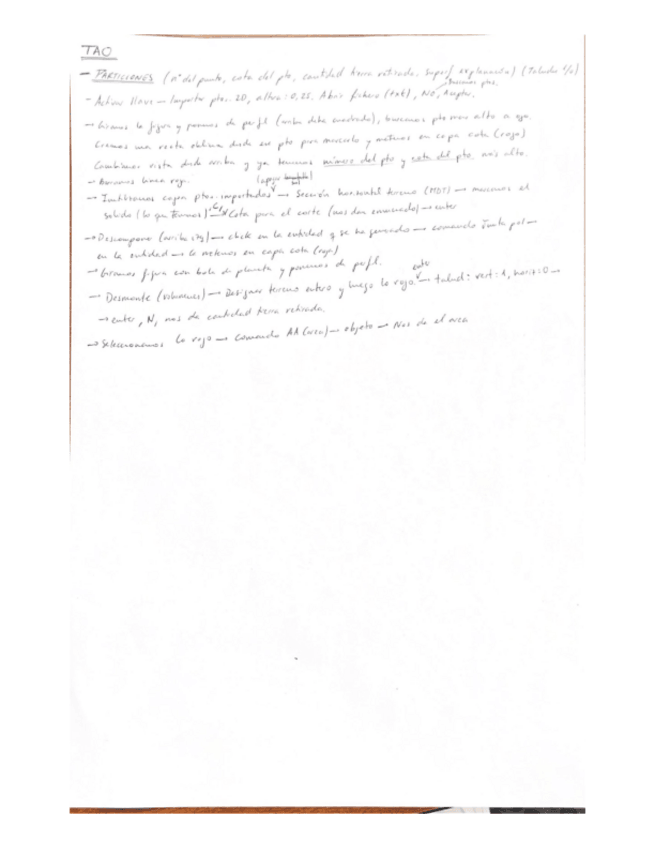 TAO
- PARTICIONES (nº del punto, cota del pto, cantidad tierra retirada, superf explanación) (Talude 1/0)
- Activar llave — Importar ptos. 2D, altura: 0,25, Abrir fichero (txt), NO, Aceptar.
→ Giramos la figura y ponemos de perfil (arriba debe cuadrado), buscamos pto más alto a ojo.
Creamos una recta oblicua desde ese pto para marcarlo y metemos en capa cota (rojo)
Cambiamos vista desde arriba y ya tenemos número del pto y cota del pto. más alto.
- Borramos línea roja.
- Inutilizamos capa ptos. importados → Sección horizontal terreno (MDT) → marcamos el
sólido (lo que Tenemos) → Cota para el corte (nos dan enunciado) → enter
→ Descompone (arriba) → click en la entidad q se ha generado → comando Junta pol →
en la entidad → lo metemos en capa cota (rojo)
- Giramos figura con bola de planeta y ponemos de perfil.
- Desmonte (volúmenes) → Designar terreno entero y luego lo rojo. → talud: vert: 1, horiz: 0 →
→ enter, N, nos da cantidad tierra retirada.
→ Seleccionamos lo rojo → comando AA (area) → objeto → Nos da el area